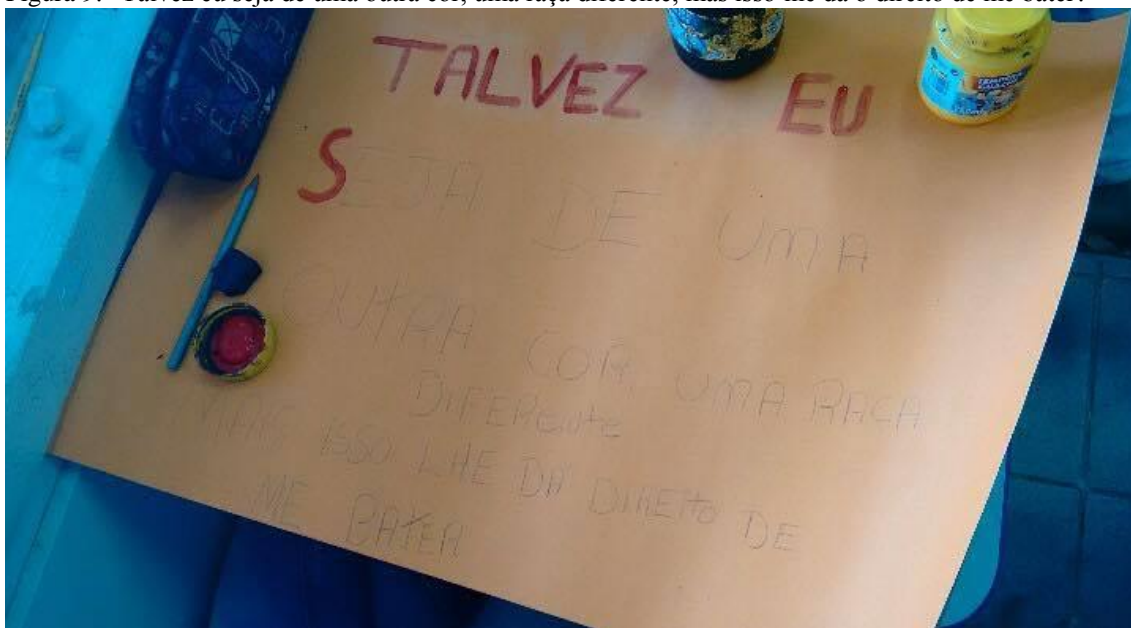 TALVEZ EU
SEJA DE UMA
OUTRA COR, UMA RACA
DIFERENTE
MAIS ISSO LHE DÁ DIREITO DE
ME BATER